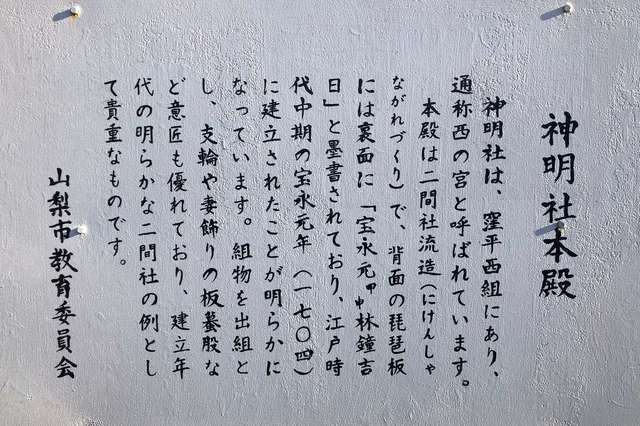 神明社本殿
神明社は、窪平西組にあり、
通称西の宮と呼ばれています。
本殿は二間社流造（にけんしゃ
ながれづくり）で、背面の琵琶板
には裏面に「宝永元甲申林鐘吉
日」と墨書されており、江戸時
代中期の宝永元年（一七〇四）
に建立されたことが明らかに
なっています。組物を出組と
し、支輪や妻飾りの板蟇股な
ど意匠も優れており、建立年
代の明らかな二間社の例とし
て貴重なものです。
山梨市教育委員会